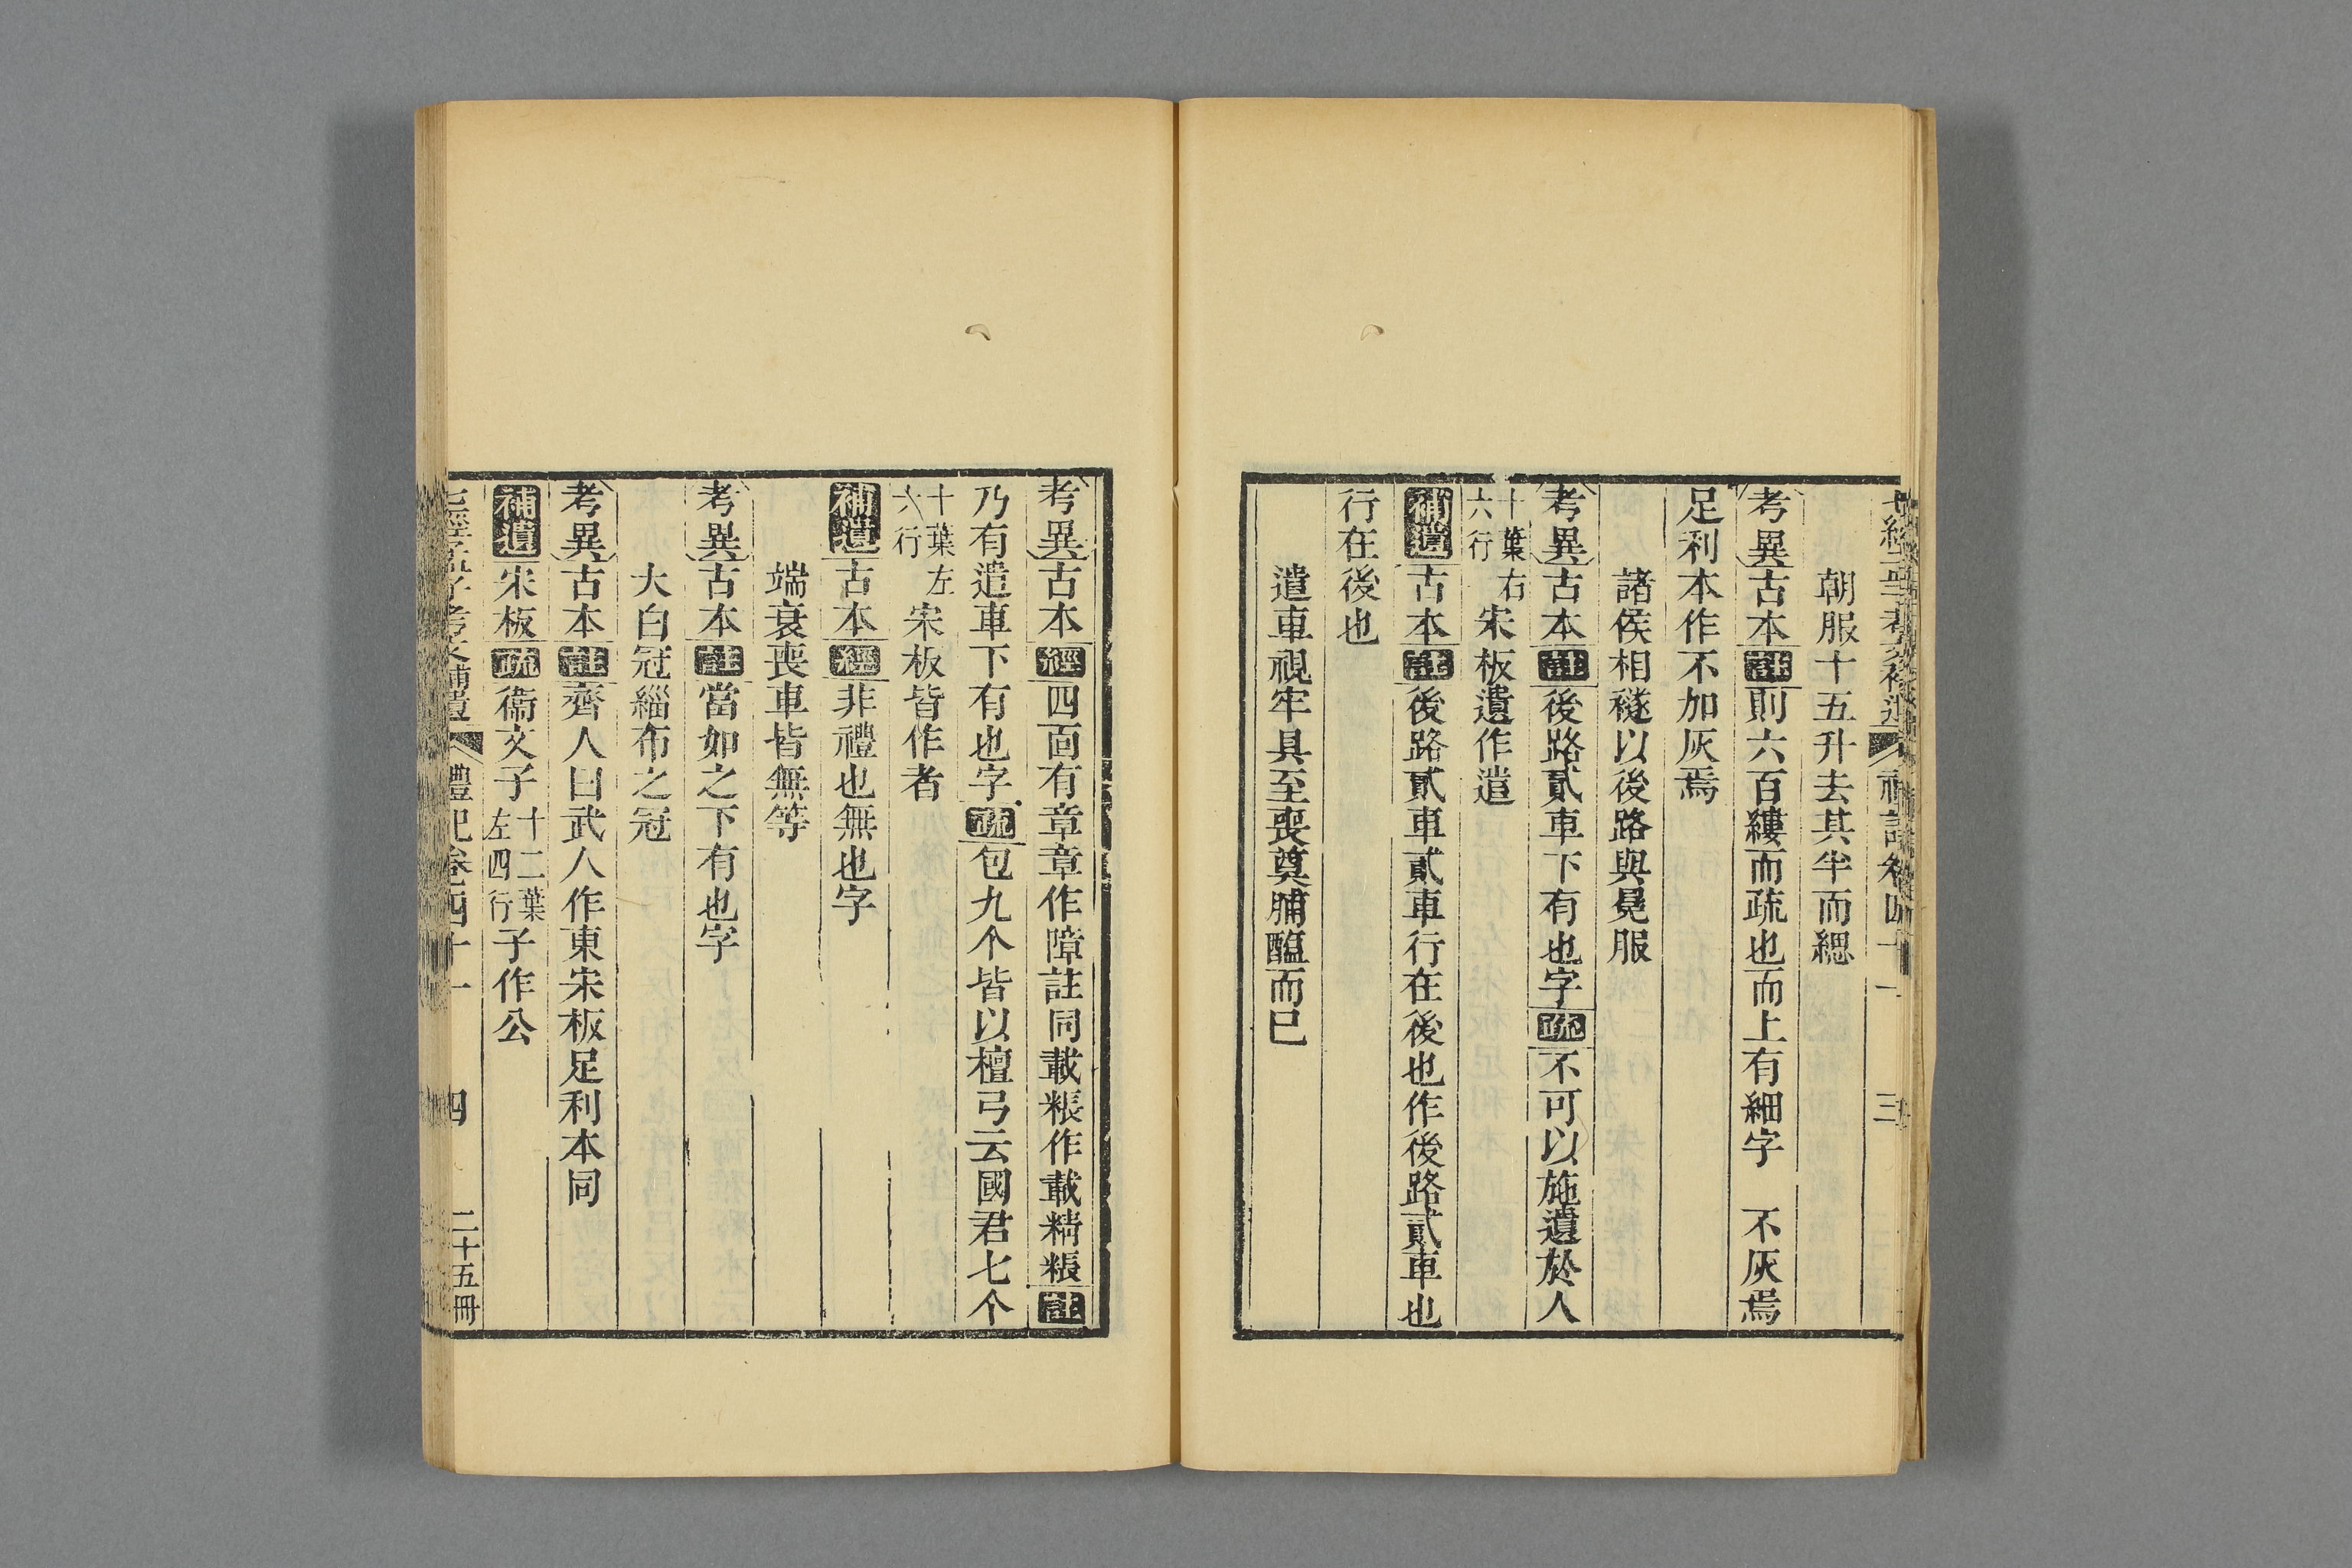 朝服十五升去其半而緦
考異古本註則六百縷而疏也而上有細字　不灰焉
足利本作不加灰焉
諸侯相襚以後路與冕服
考異古本註後路貳車下有也字疏不可以施遺於人
十葉右六行宋板遺作遣
補遺古本註後路貳車貳車行在後也作後路貳車也
行在後也
遣車視牢具至喪奠脯醢而已
考異古本經四面有章章作障註同載粻作載精粻註
乃有遣車下有也字疏包九个皆以檀弓云國君七个
十葉左六行宋板皆作者
補遺古本經非禮也無也字
端衰喪車皆無等
考異古本註當如之下有也字
大白冠緇布之冠
考異古本註齊人曰武人作東宋板足利本同
補遺宋板疏衞文子十二葉左四行子作公
禮記卷四十一　四　二十五冊